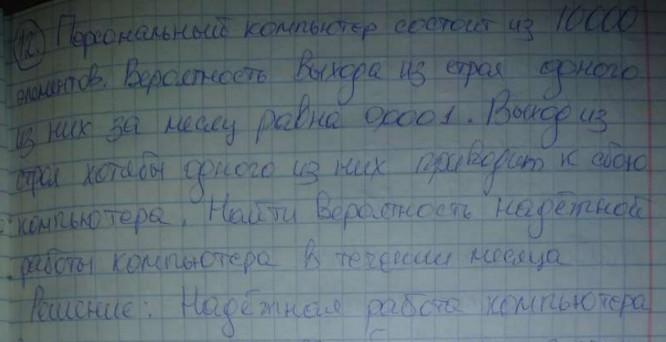 12. Персональный компьютер состоит из 10000
элементов. Вероятность выхода из строя одного
из них за месяц равна 0,0001. Выход из
строя хотябы одного из них приводит к сбою
компьютера. Найти вероятность надёжной
работы компьютера в течении месяца
Решение: Надёжная работа компьютера